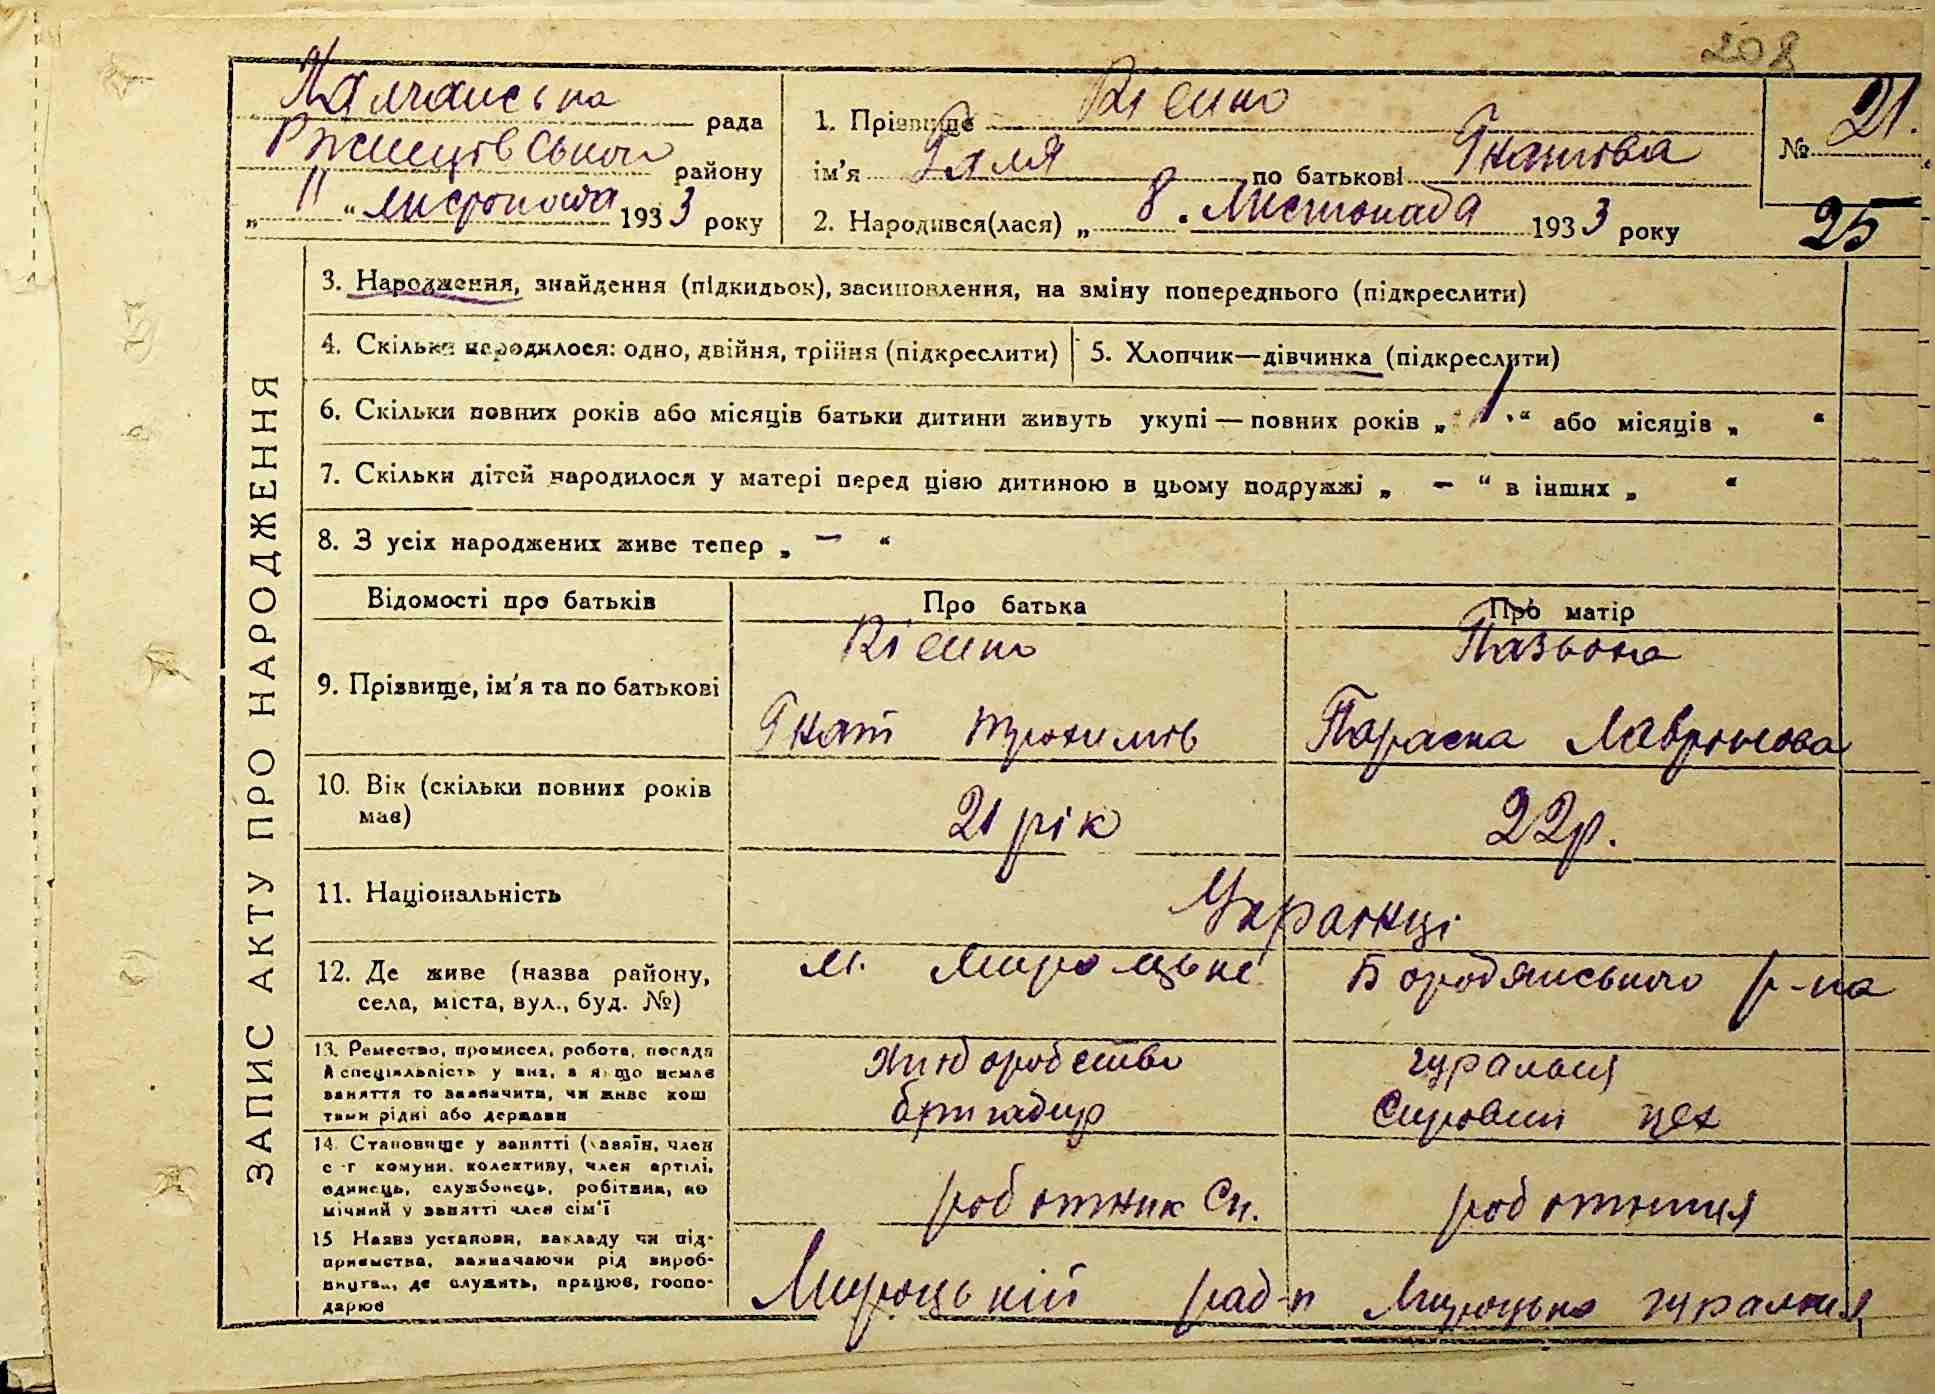 208
рада
району
„ 11 “ листопада 1933 року
1. Прізвище Вієнко
ім'я Галя по батькові Гнатова
2. Народився(лася) „ 8. листопада 1933 року
№ 21.
25
ЗАПИС АКТУ ПРО НАРОДЖЕННЯ
3. Народження, знайдення (підкидьок), засиновлення, на зміну попереднього (підкреслити)
4. Скільки народилося: одно, двійня, трійня (підкреслити)
5. Хлопчик—дівчинка (підкреслити)
6. Скільки повних років або місяців батьки дитини живуть укупі — повних років „ 1 “ або місяців „ “
7. Скільки дітей народилося у матері перед цією дитиною в цьому подружжі „ – “ в інших „ “
8. З усіх народжених живе тепер „ – “
Відомості про батьків
Про батька
Про матір
9. Прізвище, ім'я та по батькові
Вієнко
Гнат Трохимів
Параска Лавронова
10. Вік (скільки повних років
має)
21 рік
22 р.
11. Національність
Українці
12. Де живе (назва району,
села, міста, вул., буд. №)
м. Мироцьке Бородянського р-на
13. Ремество, промисел, робота, посада
й спеціяльність у яка, а якщо немає
заняття то зазначити, чи живе кош
тами рідні або держави
хліборобство
бригадир
гуральня
Сировий цех
14. Становище у занятті (хазяїн, член
с-г комуни, колективу, член артілі,
одинець, службовець, робітник, по
мічний у занятті член сім'ї
роботник Сп.
роботниця
15 Назва установи, закладу чи під-
приємства, зазначаючи рід вироб-
ництва, де служить, працює, госпо-
дарює
Мироцький рад-п
Мироцька гуральня